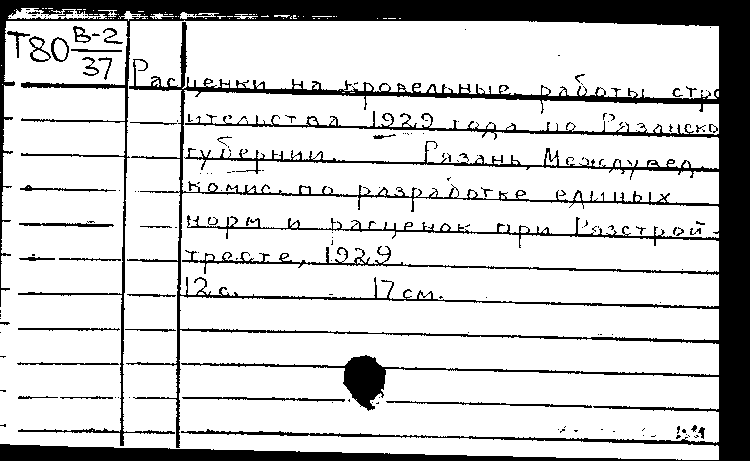 Т80 В-2
37
Расценки на кровельные работы стро
ительства 1929 года по Рязанско
губернии. Рязань, Междувед.
комис. по разработке единых
норм и расценок при Рязстрой-
тресте, 1929.
12 с. 17 см.